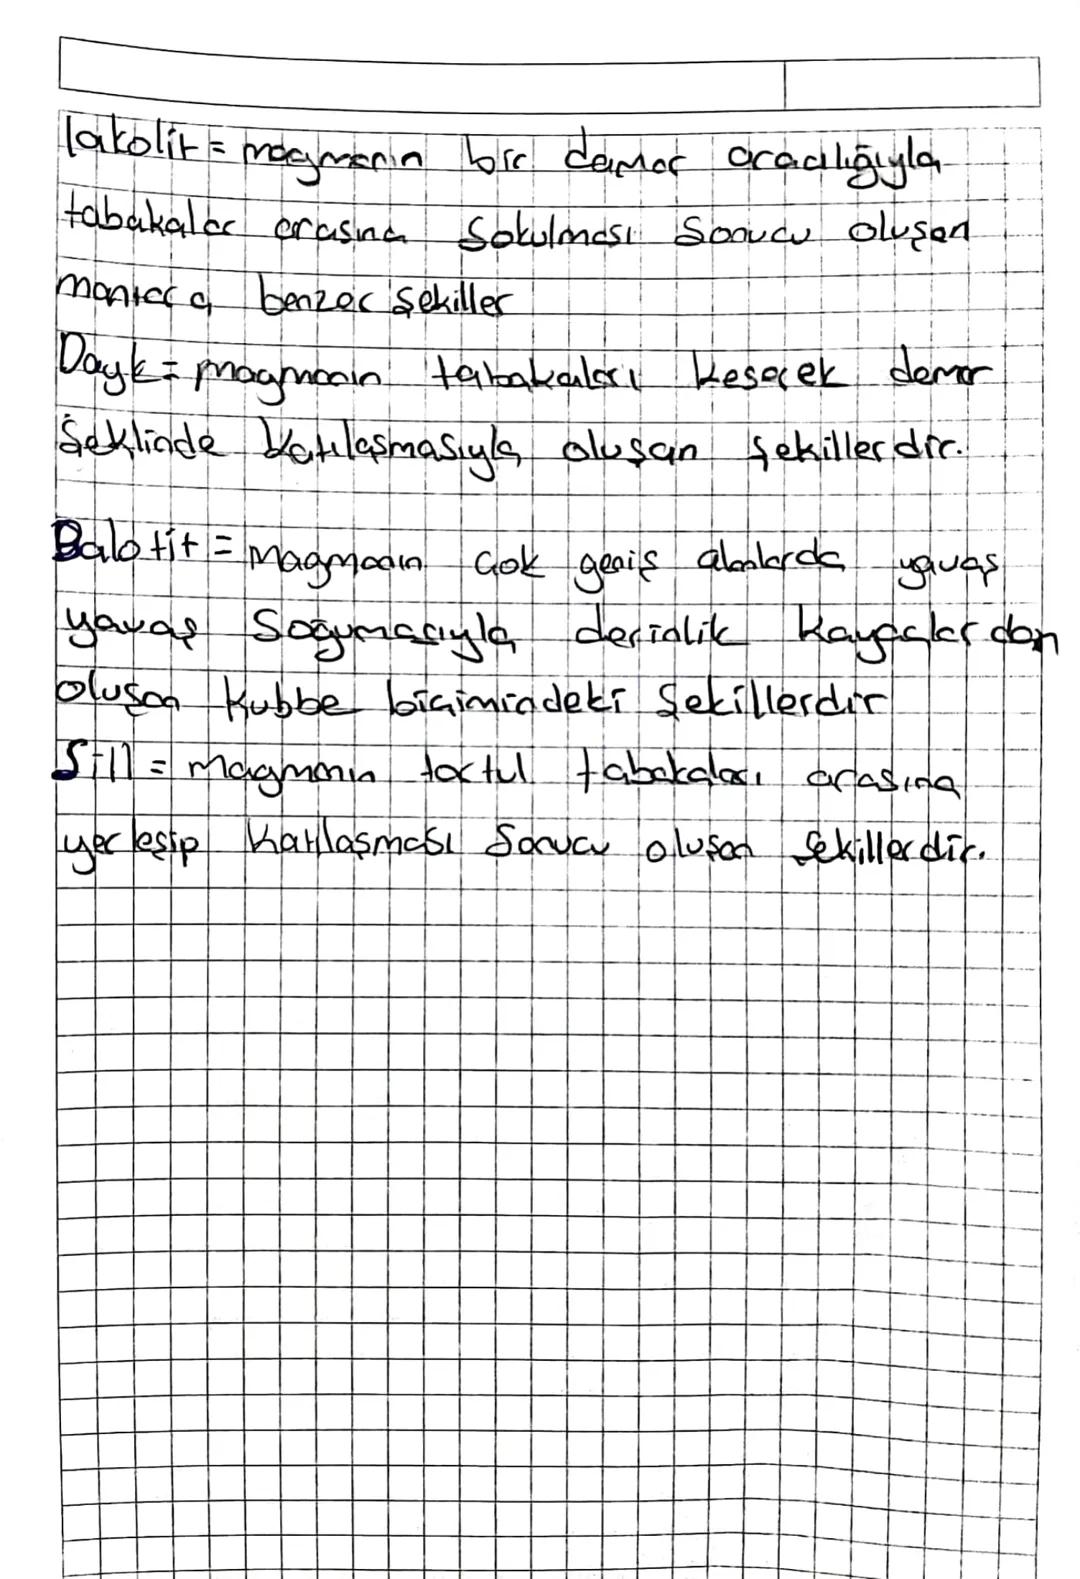 lakolit = magmanın bir damar aracılığıyla
tabakalar arasına Sokulması Sonucu oluşan
mantara benzer şekiller
Dayk = magmanın tabakaları kesecek damar
Şeklinde katılaşmasıyla oluşan şekillerdir.
Balotit = Magmanın çok geniş alanlarda yavaş
yavaş Soğumasıyla derinlik kayaçlardan
oluşan kubbe biçimindeki şekillerdir
Sill = magmanın tortul tabakaları arasına
yerleşip katılaşması Sonucu oluşan şekillerdir.